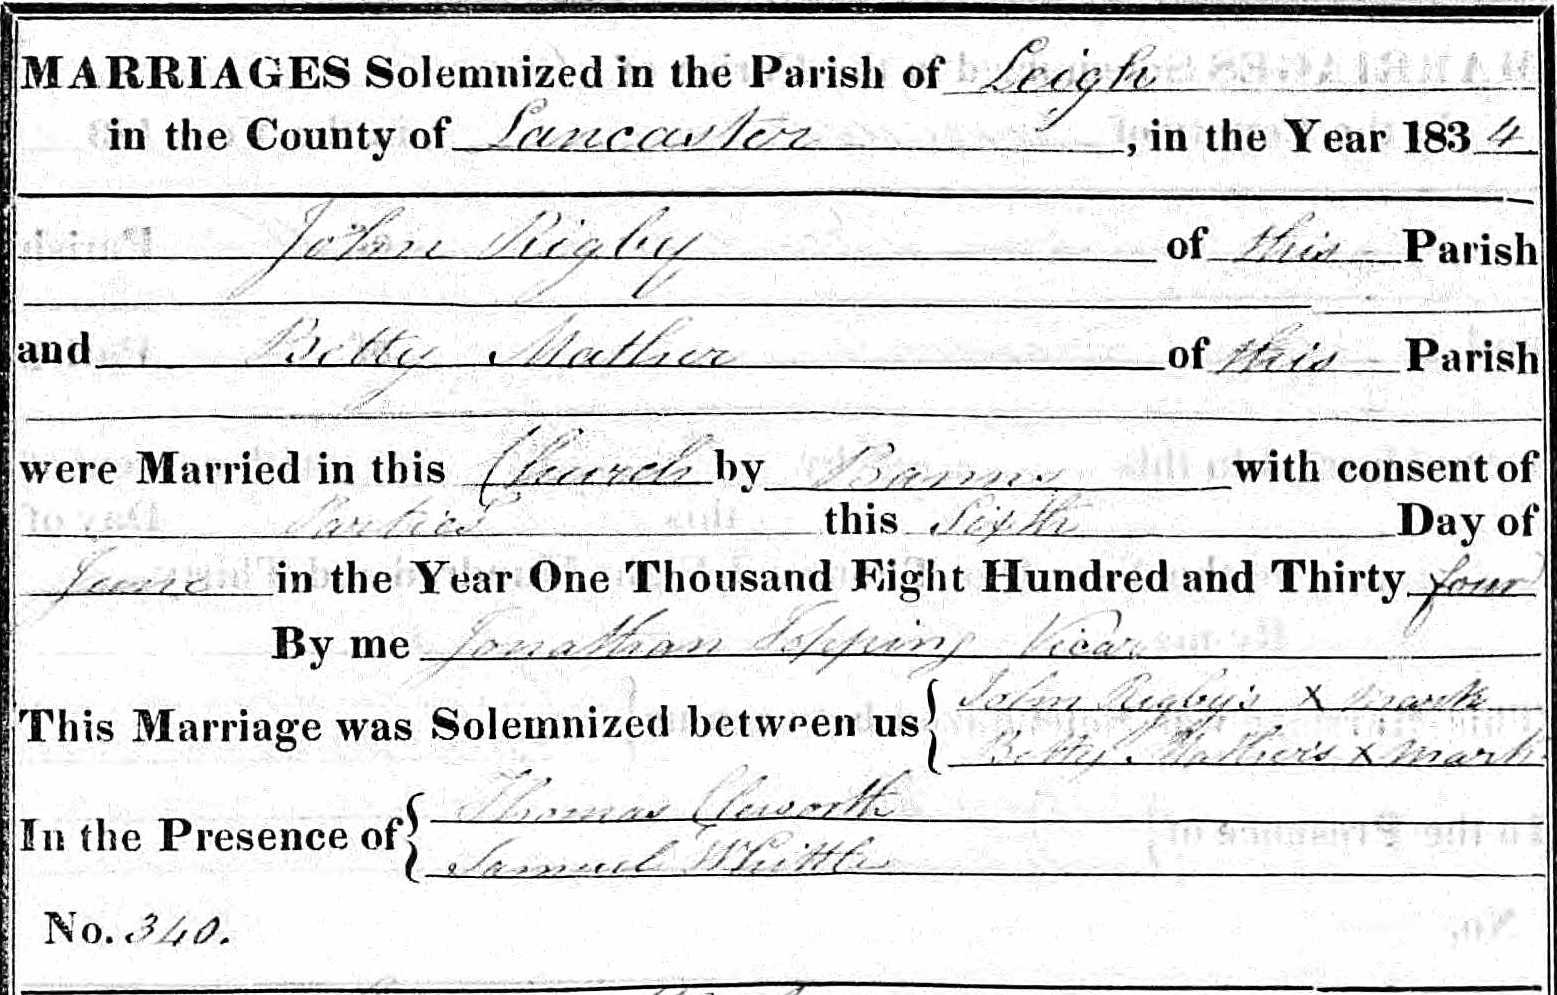 MARRIAGES Solemnized in the Parish of Leigh
in the County of Lancaster, in the Year 1834
John Rigby of this Parish
and Betty Mather of this Parish
were Married in this Church by Banns with consent of
Parties this Sixth Day of
June in the Year One Thousand Eight Hundred and Thirty four
By me Jonathan Topping Vicar
This Marriage was Solemnized between us { John Rigby's X mark
Betty Mather's X mark
In the Presence of { Thomas Cleworth
Samuel Whittle
No. 340.